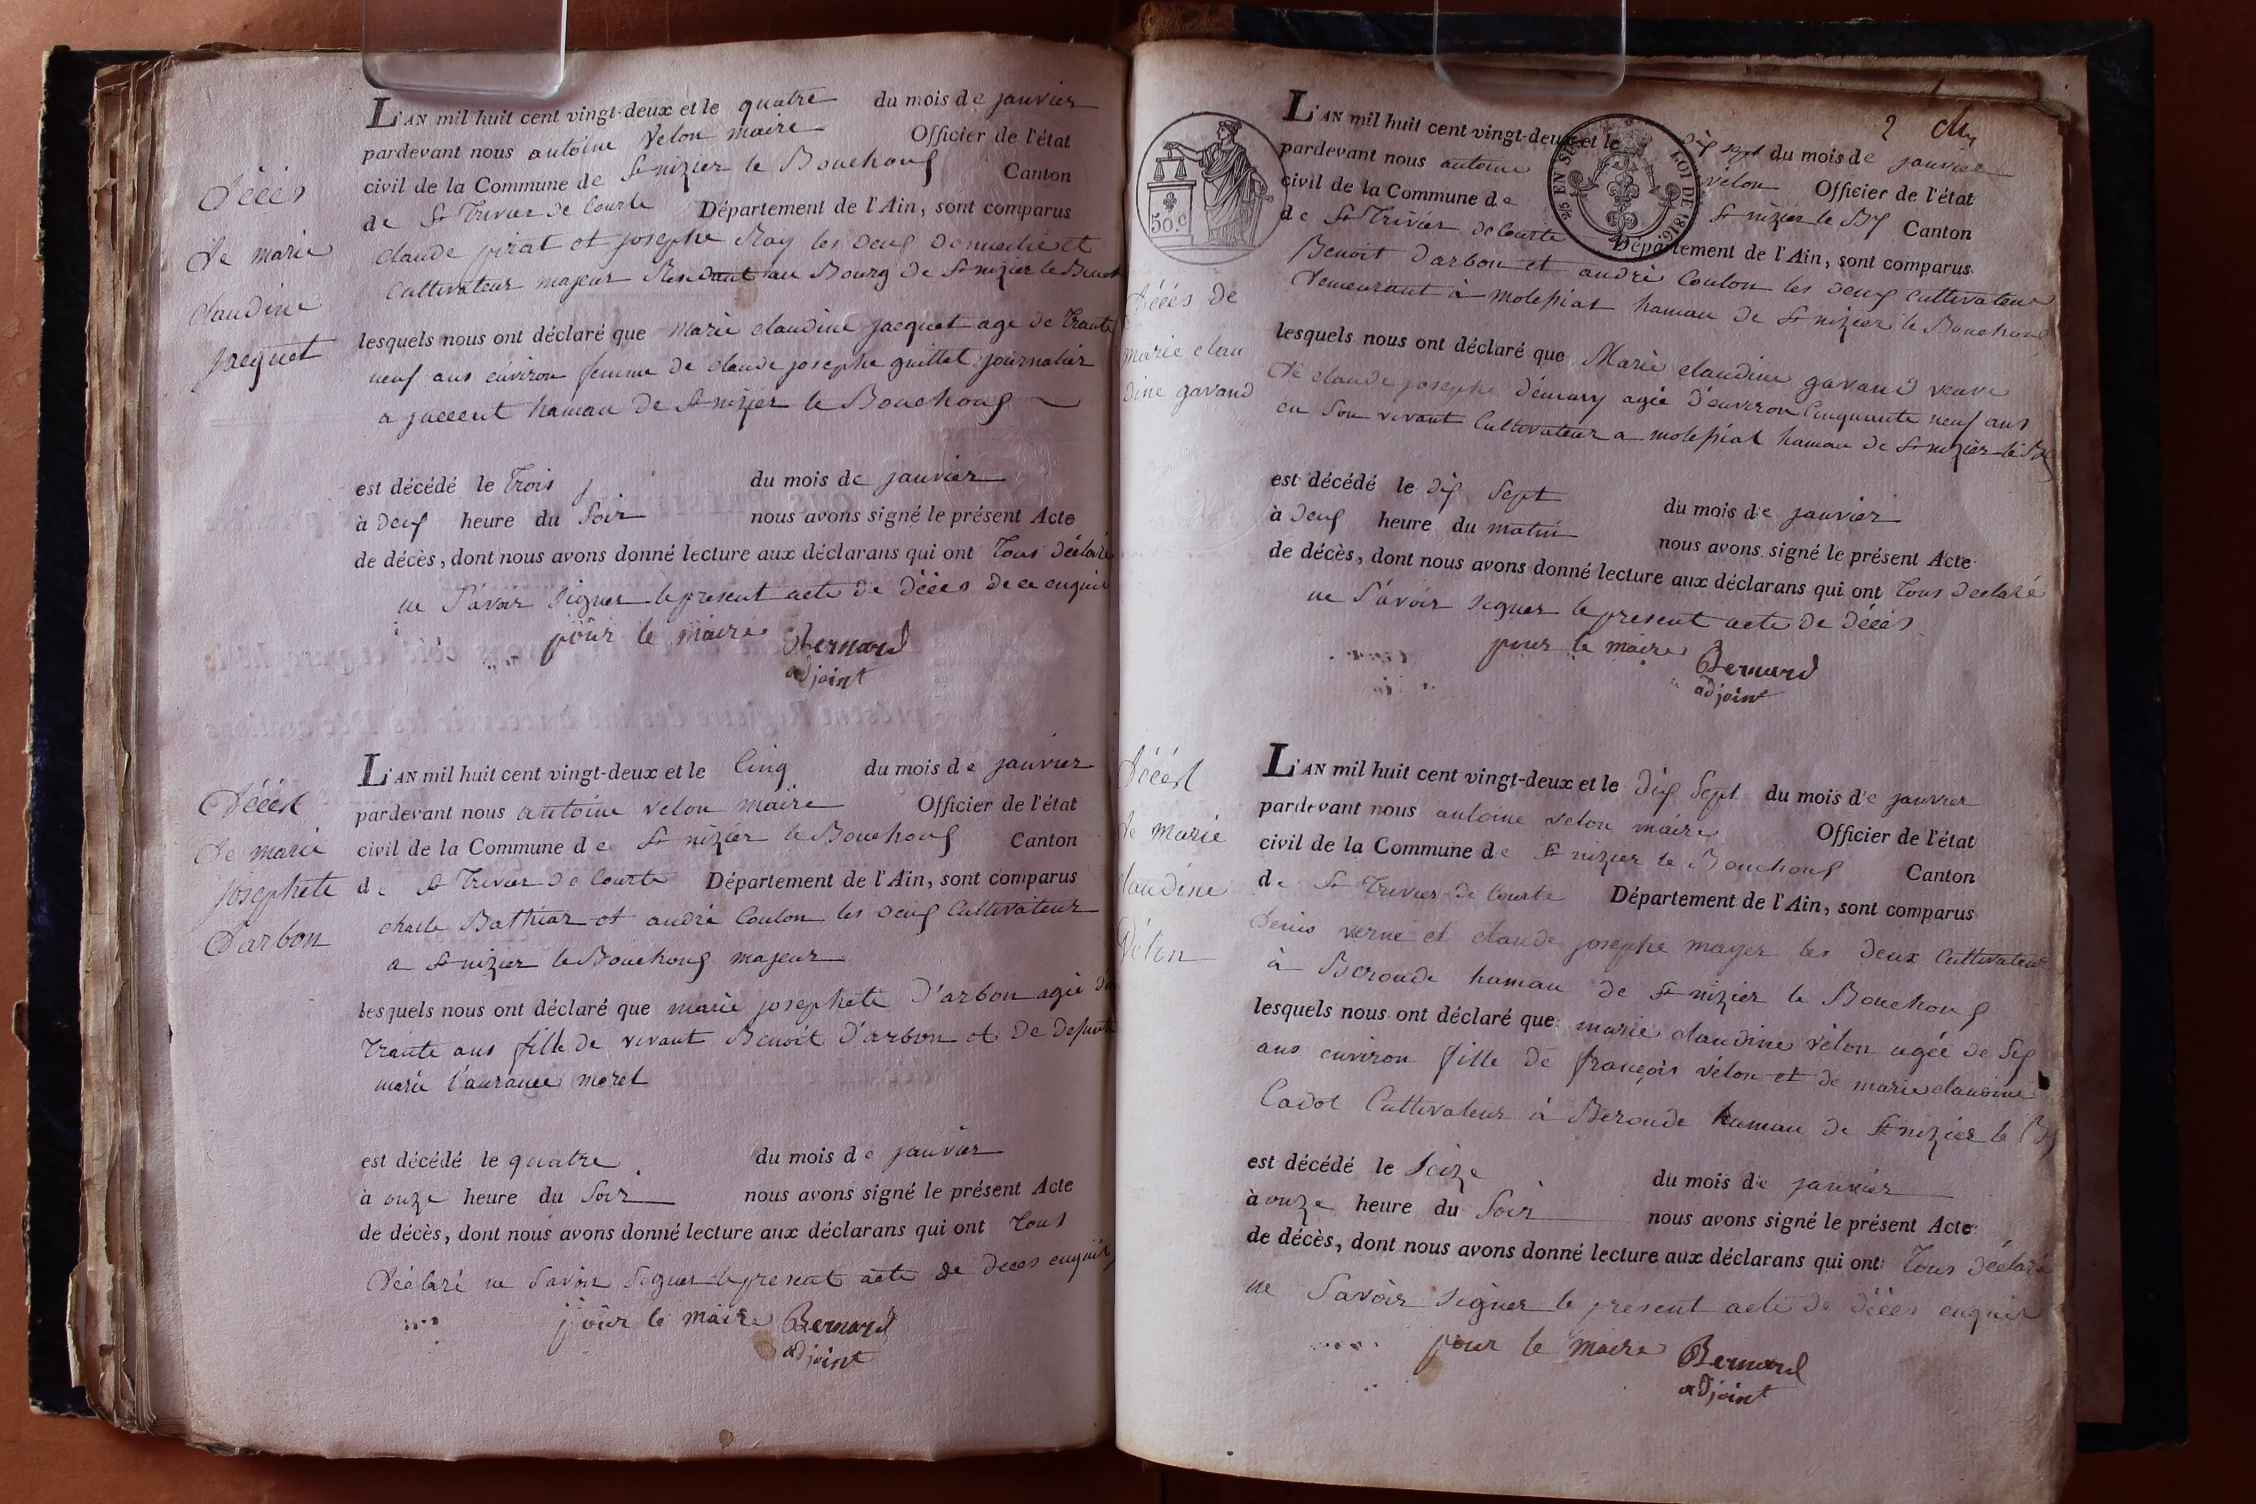 Décès
de marie
claudine
jacquet
L'AN mil huit cent vingt-deux et le quatre du mois de janvier
pardevant nous antoine Velon maire Officier de l'état
civil de la Commune de St nizier le Bouchoux Canton
de St Trivier de Courte Département de l'Ain, sont comparus
claude pirat et josephe Ray les deux domicilié et
Cultivateur majeur Residant au Bourg de St nizier le Bouch
lesquels nous ont déclaré que marie claudine jacquet age de trante
neuf ans environ femme de claude josephe guillet journalier
a hamau de St nizier le Bouchoux
est décédé le trois du mois de janvier
à deux heure du Soir nous avons signé le présent Acte
de décès, dont nous avons donné lecture aux déclarans qui ont tous déclaré
ne Savoir Signer le present acte de décès de ce enquis
pour le maire Bernard
adjoint
Décès
de marie
josephete
Darbon
L'AN mil huit cent vingt-deux et le Cinq du mois de janvier
pardevant nous antoine velon maire Officier de l'état
civil de la Commune de St nizier le Bouchoux Canton
de St Trivier de Courte Département de l'Ain, sont comparus
charle Bathiar et andré Coulon les deux Cultivateur
a St nizier le Bouchoux majeur
lesquels nous ont déclaré que marie josephete D'arbon agée de
trante ans fille de vivant Benoit D'arbon et de defunte
marie l'aurance morel
est décédé le quatre du mois de janvier
à onze heure du Soir nous avons signé le présent Acte
de décès, dont nous avons donné lecture aux déclarans qui ont tous
Déclaré ne Savoir Signer le present acte de deces enquis
pour le maire Bernard
adjoint
2
50 c
25 EN SUS
LOI DE 1816.
Décès de
marie clau
dine gavand
L'AN mil huit cent vingt-deux et le dix sept du mois de janvier
pardevant nous antoine vélon Officier de l'état
civil de la Commune de St nizier le Bx Canton
de St Trivier de Courte Département de l'Ain, sont comparus
Benoit Darbon et andré Coulon les deux cultivateur
demeurant à molepiat hamau de St nizier le Bouchoux
lesquels nous ont déclaré que Marie claudine gavand veuve
de claude josephe démury agée d'environ Cinquante neuf ans
en Son vivant Cultivateur a molepiat hamau de St nizier le Bx
est décédé le dix Sept du mois de janvier
à deux heure du matin nous avons signé le présent Acte
de décès, dont nous avons donné lecture aux déclarans qui ont tous declaré
ne Savoir signer le present acte de décès
pour le maire Bernard
adjoint
Décès
de marie
claudine
Vélon
L'AN mil huit cent vingt-deux et le dix Sept du mois de janvier
pardevant nous antoine velon maire Officier de l'état
civil de la Commune de St nizier le Bouchoux Canton
de St Trivier de Courte Département de l'Ain, sont comparus
Denis verne et claude josephe mayer les deux Cultivateur
à Beroude hamau de St nizier le Bouchoux
lesquels nous ont déclaré que marie claudine vélon agée de Six
ans environ fille de françois vélon et de marie claudine
Cadot Cultivateur à Beroude hamau de St nizier le Bx
est décédé le Seize du mois de janvier
à onze heure du Soir nous avons signé le présent Acte
de décès, dont nous avons donné lecture aux déclarans qui ont tous déclaré
ne Savoir signer le present acte de décès enquis
pour le maire Bernard
adjoint